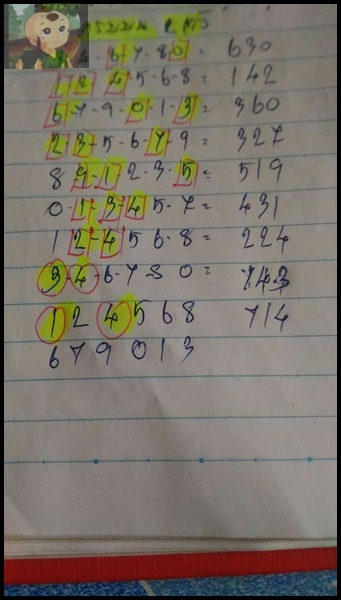 6-7-8-0= 630
1-2-4-5-6-8= 142
6-7-9-0-1-3= 360
2-3-5-6-7-9 327
8 9-1-2-3-5= 519
0-1-3-4-5-7= 431
1 2-4-5 6-8= 224
3-4-6-7-8 0= 743
1 2 4 5 6 8 714
6 7 9 0 1 3